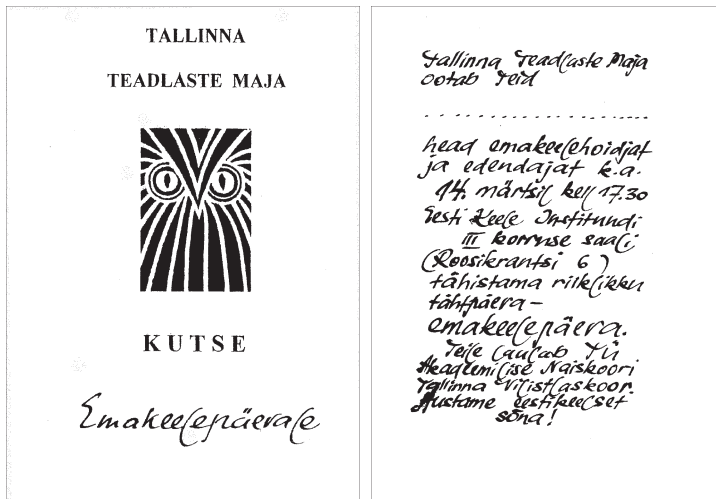 TALLINNA
TEADLASTE MAJA
KUTSE
Emakeelepäevale
Tallinna Teadlaste Maja
ootab Teid
head emakeelehoidjat
ja edendajat k.a.
14. märtsil kell 17.30
Eesti Keele Instituudi
III korruse saali
(Roosikrantsi 6)
tähistama riiklikku
tähtpäeva –
emakeelepäeva.
Teile laulab TÜ
Akadeemilise Naiskoori
Tallinna Vilistlaskoor.
Austame eestikeelset
sõna!